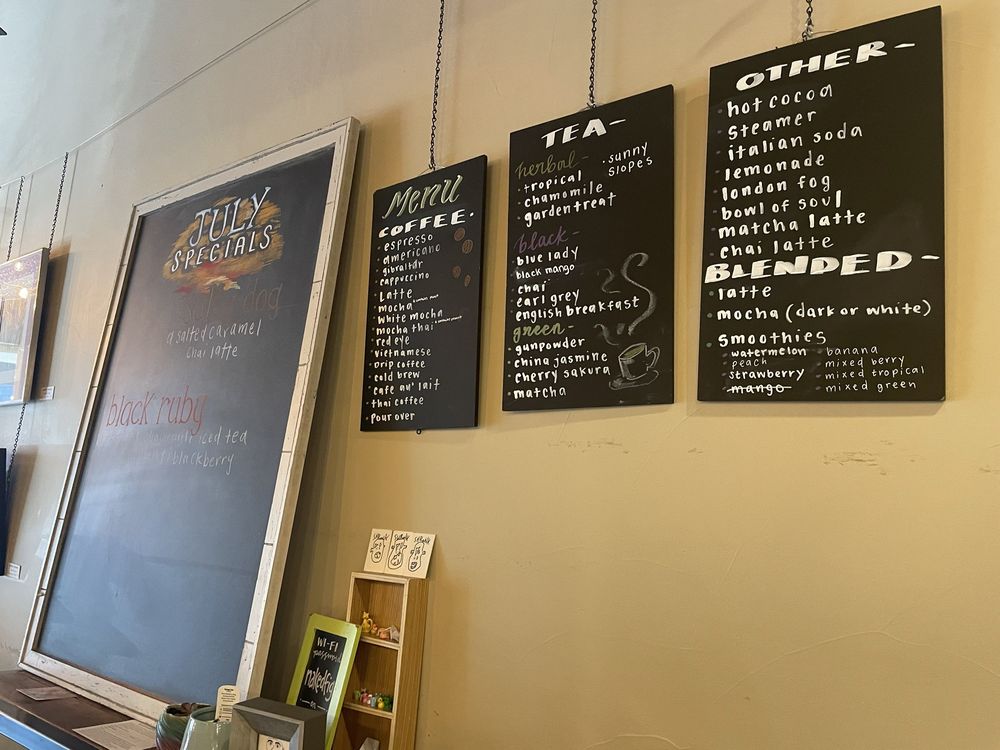 JULY
SPECIALS
dog
a salted caramel
chai latte
black ruby
iced tea
blackberry
Menu
COFFEE.
espresso
americano
gibraltar
cappuccino
Latte
mocha
white mocha
mocha thai
red eye
vietnamese
Drip coffee
cold brew
cafe au' lait
thai coffee
Pour over
TEA-
herbal-
tropical
chamomile
garden treat
• sunny
slopes
black-
blue lady
black mango
chai
earl grey
english breakfast
green-
gunpowder
china jasmine
cherry sakura
matcha
OTHER-
hot cocoa
steamer
italian soda
lemonade
london fog
bowl of soul
matcha latte
chai latte
BLENDED-
latte
mocha (dark or white)
smoothies
watermelon
peach
strawberry
mango
banana
mixed berry
mixed tropical
mixed green
WI-FI